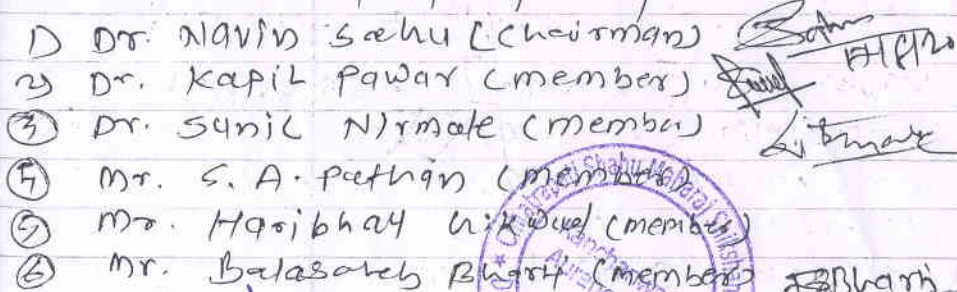 1) Dr. Navin Sahu (Chairman)
2) Dr. Kapil Pawar (member)
3) Dr. Sunil Nirmale (member)
4) Mr. S. A. Pathan (member)
5) Mr. Haribhau (member)
6) Mr. Balasaheb Bharti (member) Bharti
Chhatrapati Shahu Maharaj Shikshan